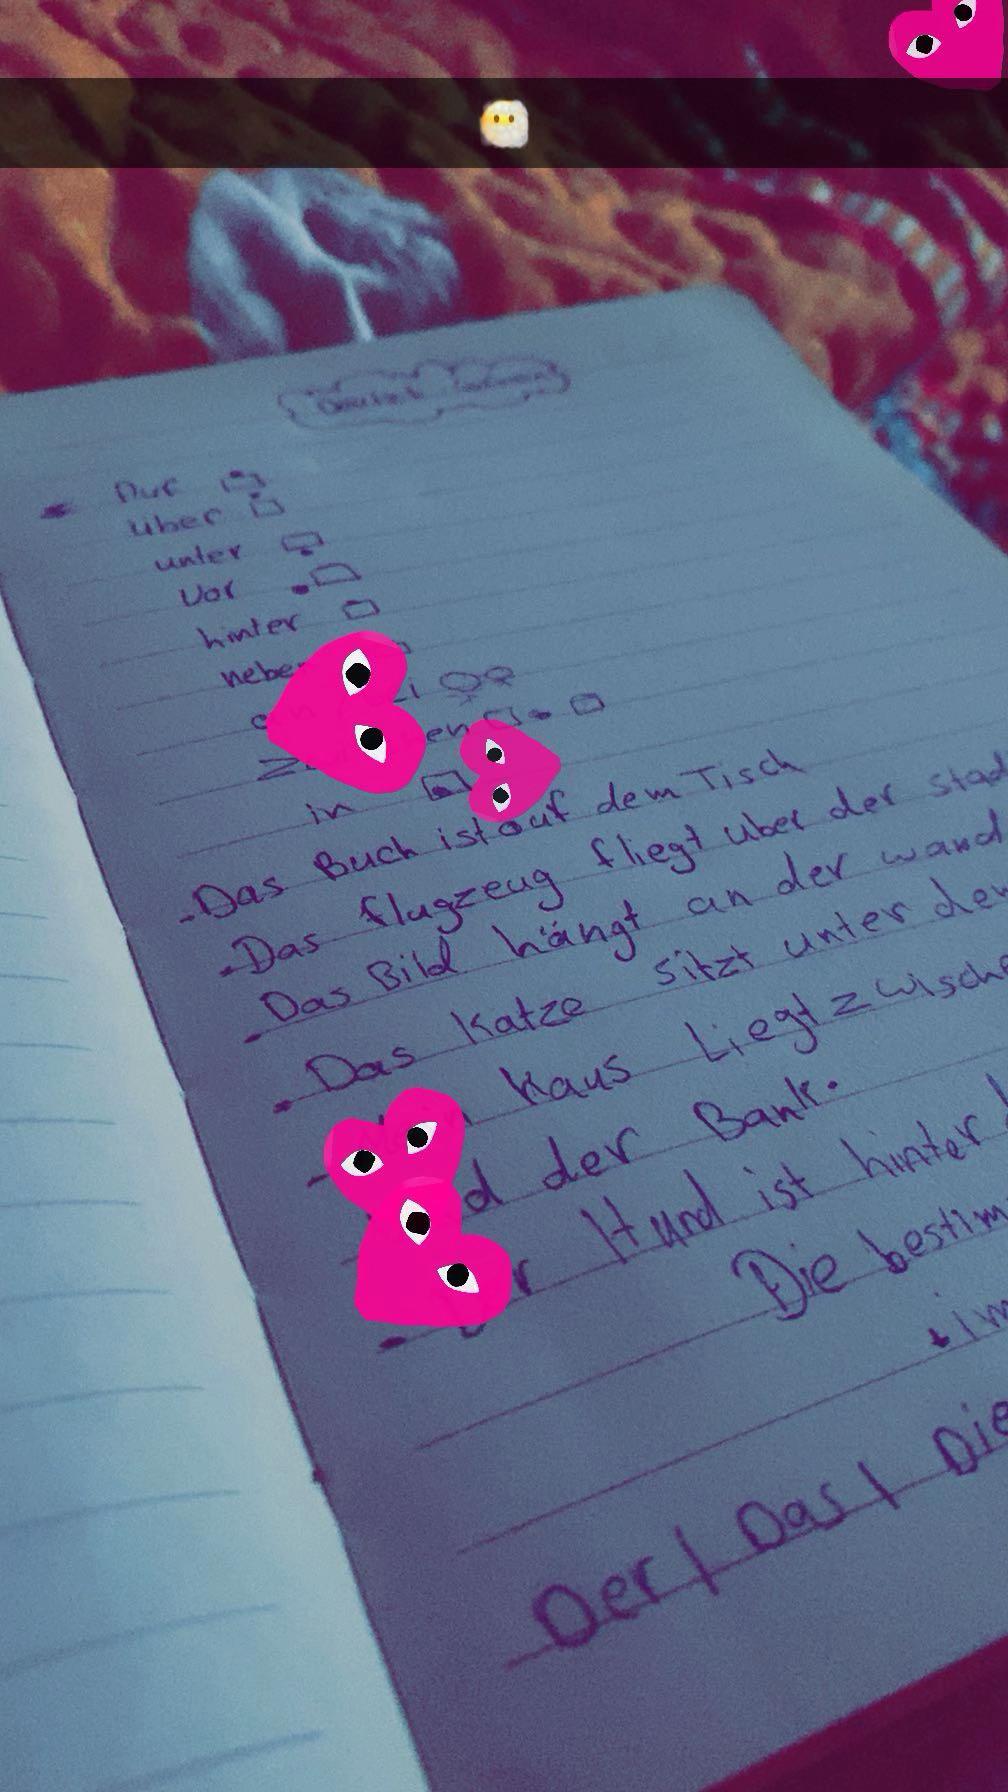 Auf
über
unter
Vor
hinter
in
Das Buch ist auf dem Tisch
Das flugzeug fliegt uber der stad
Das Bild hängt an der wand
Das Katze sitzt unter
Kaus Liegt
der Bank.
Hund ist hinter
Die
Der | Das | Die